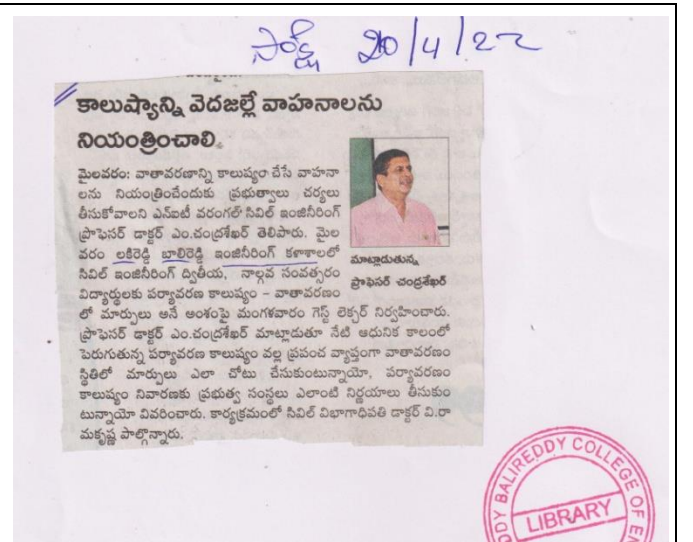 సాక్షి 20/4/22
కాలుష్యాన్ని వెదజల్లే వాహనాలను
నియంత్రించాలి
మైలవరం: వాతావరణాన్ని కాలుష్యం చేసే వాహనా
లను నియంత్రించేందుకు ప్రభుత్వాలు చర్యలు
తీసుకోవాలని ఎన్ఐటీ వరంగల్ సివిల్ ఇంజినీరింగ్
ప్రొఫెసర్ డాక్టర్ ఎం.చంద్రశేఖర్ తెలిపారు. మైల
వరం లకిరెడ్డి బాలిరెడ్డి ఇంజినీరింగ్ కళాశాలలో
సివిల్ ఇంజినీరింగ్ ద్వితీయ, నాల్గవ సంవత్సరం
విద్యార్థులకు పర్యావరణ కాలుష్యం – వాతావరణం
లో మార్పులు అనే అంశంపై మంగళవారం గెస్ట్ లెక్చర్ నిర్వహించారు.
ప్రొఫెసర్ డాక్టర్ ఎం.చంద్రశేఖర్ మాట్లాడుతూ నేటి ఆధునిక కాలంలో
పెరుగుతున్న పర్యావరణ కాలుష్యం వల్ల ప్రపంచ వ్యాప్తంగా వాతావరణం
స్థితిలో మార్పులు ఎలా చోటు చేసుకుంటున్నాయో, పర్యావరణం
కాలుష్యం నివారణకు ప్రభుత్వ సంస్థలు ఎలాంటి నిర్ణయాలు తీసుకుం
టున్నాయో వివరించారు. కార్యక్రమంలో సివిల్ విభాగాధిపతి డాక్టర్ వి.రా
మకృష్ణ పాల్గొన్నారు.
మాట్లాడుతున్న
ప్రొఫెసర్ చంద్రశేఖర్
DDY BALIREDDY COLLEGE OF EN
LIBRARY